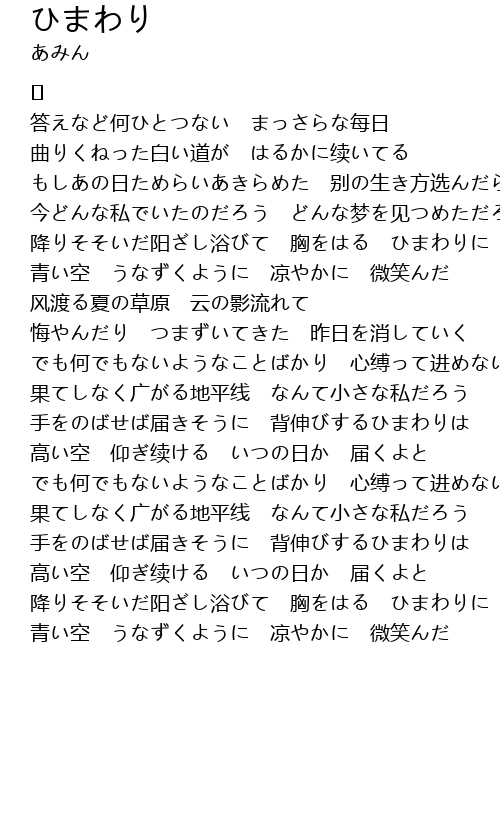 ひまわり
あみん
答えなど何ひとつない　まっさらな毎日
曲りくねった白い道が　はるかに续いてる
もしあの日ためらいあきらめた　别の生き方选んだら
今どんな私でいたのだろう　どんな梦を见つめただろ
降りそそいだ阳ざし浴びて　胸をはる　ひまわりに
青い空　うなずくように　凉やかに　微笑んだ
风渡る夏の草原　云の影流れて
悔やんだり　つまずいてきた　昨日を消していく
でも何でもないようなことばかり　心缚って进めない
果てしなく广がる地平线　なんて小さな私だろう
手をのばせば届きそうに　背伸びするひまわりは
高い空　仰ぎ续ける　いつの日か　届くよと
でも何でもないようなことばかり　心缚って进めない
果てしなく广がる地平线　なんて小さな私だろう
手をのばせば届きそうに　背伸びするひまわりは
高い空　仰ぎ续ける　いつの日か　届くよと
降りそそいだ阳ざし浴びて　胸をはる　ひまわりに
青い空　うなずくように　凉やかに　微笑んだ